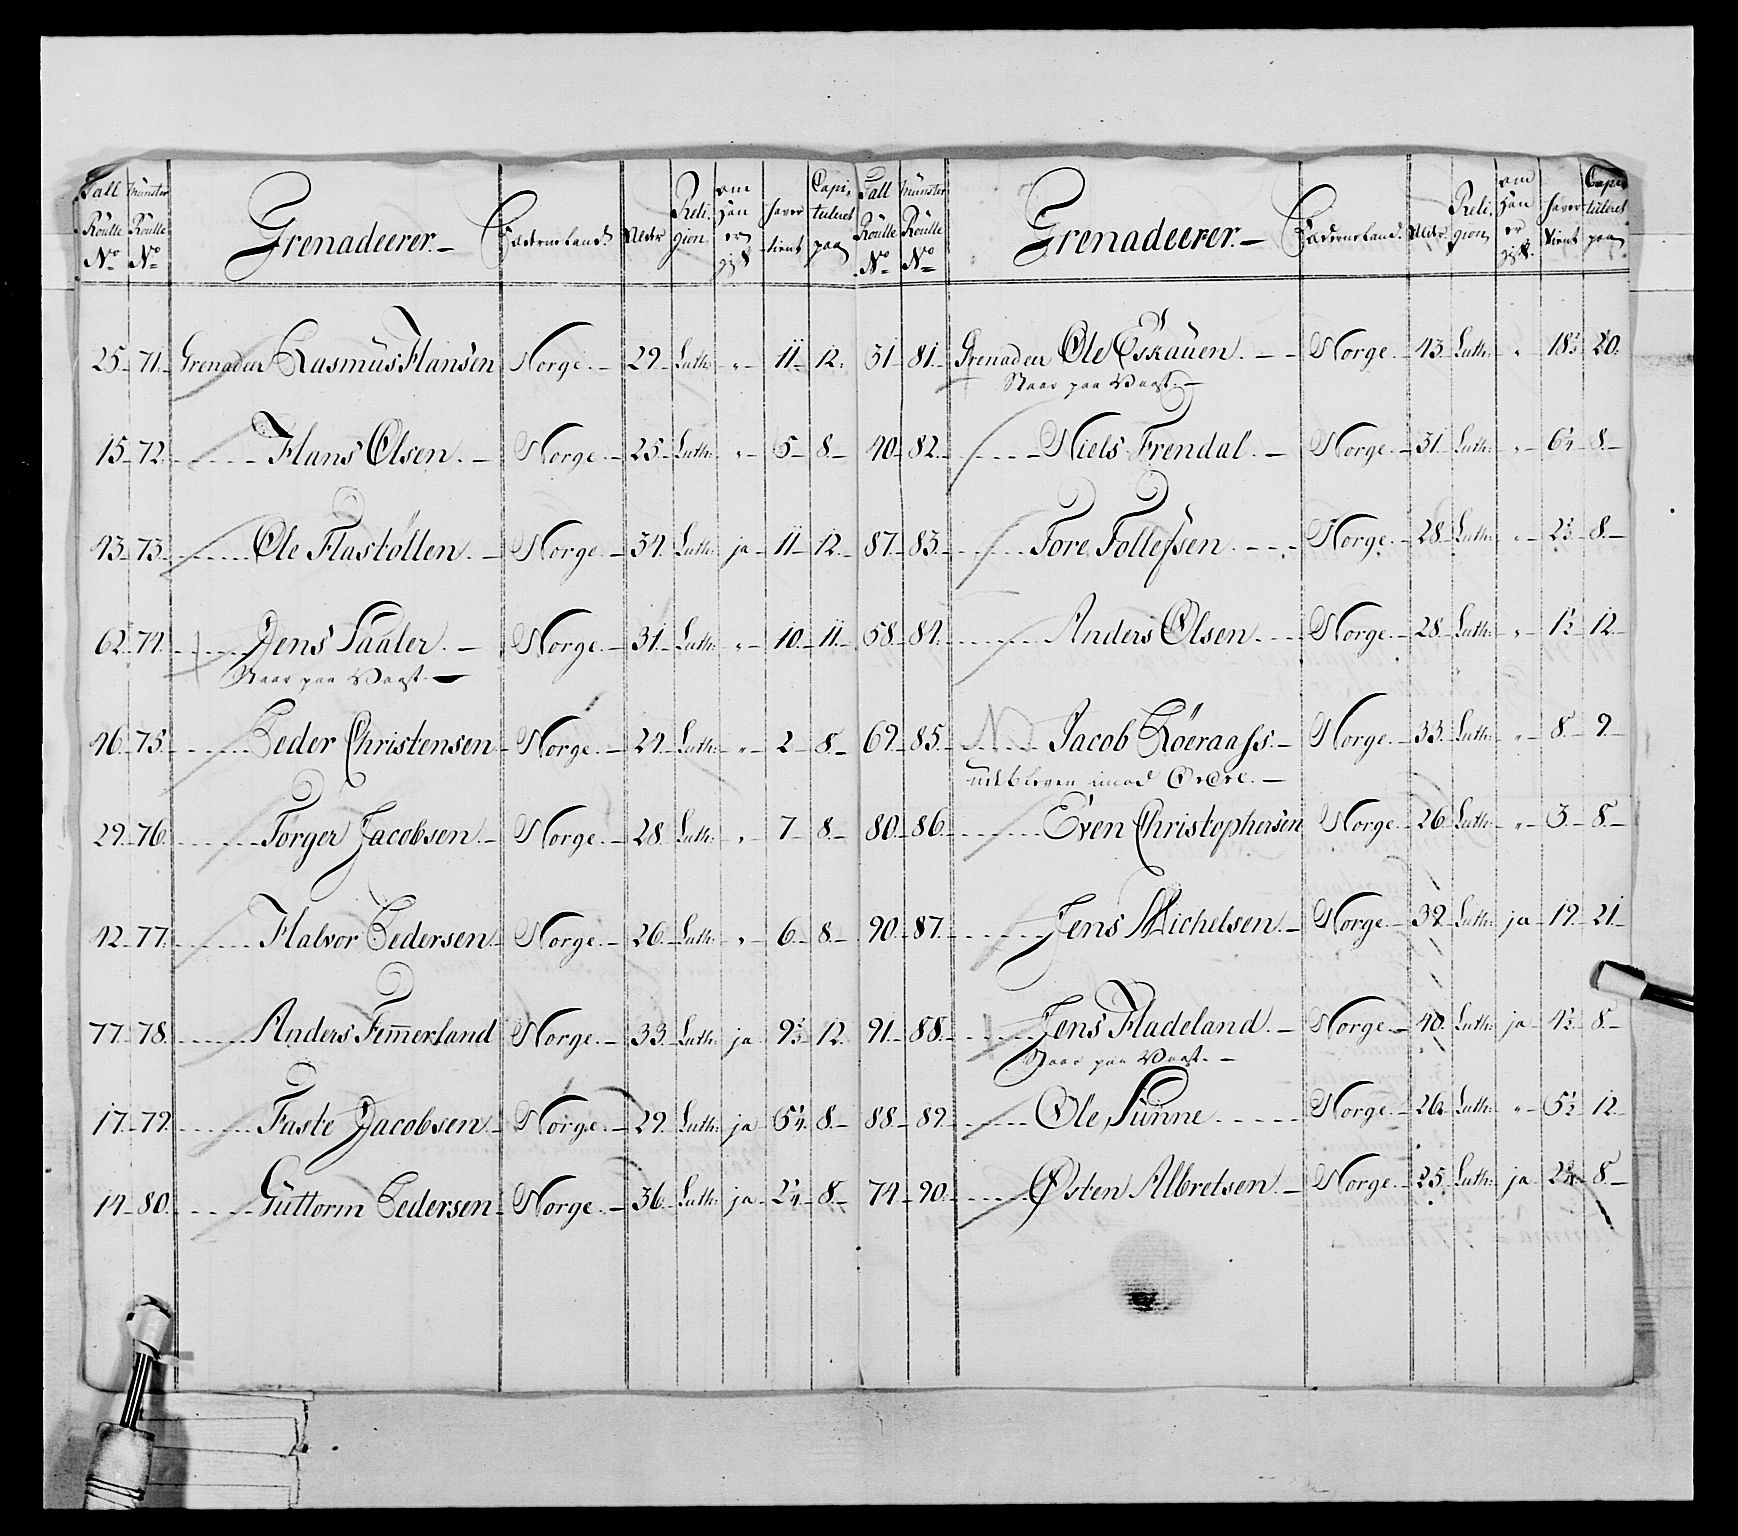 Tall Roulle No Münster Roulle No Grenadeerer. Fæderneland Alder Religion om han er gift haver tient Capituleret paa
25 71 Grenadeer Rasmus Hansen Norge 29 Luth: " 11 12
15 72 Hans Olsen Norge 25 Luth: " 5 8
43 73 Ole Hastøllen Norge 34 Luth: ja 11 12
62 74 Jens Saaler Norge 31 Luth: " 10 11
Staar paa Vagt
46 75 Peder Christensen Norge 24 Luth: " 2 8
29 76 Torger Jacobsen Norge 28 Luth: " 7 8
42 77 Halvor Pedersen Norge 26 Luth: " 6 8
77 78 Anders Temerland Norge 33 Luth: ja 9½ 12
17 79 Taste Jacobsen Norge 29 Luth: ja 5¼ 8
14 80 Guttorm Pedersen Norge 36 Luth: ja 2¼ 8
Tall Roulle No Münster Roulle No Grenadeerer. Fæderneland Alder Religion om han er gift haver tient Capituleret paa
31 81 Grenadeer Ole Eskauen Norge 43 Luth: " 18½ 20
Staar paa Vagt
40 82 Niels Frendal Norge 31 Luth: " 6¼ 8
87 83 Tore Tollefsen Norge 28 Luth: " 2½ 8
58 84 Anders Olsen Norge 28 Luth: " 1½ 12
69 85 Jacob Röeraass Norge 33 Luth: " 8 9
udbleven imod Ordre
80 86 Even Christophersen Norge 26 Luth: " 3 8
90 87 Jens Michelsen Norge 39 Luth: ja 19 21
91 88 Jens Fladeland Norge 40 Luth: ja 4½ 8
Staar paa Vagt
88 89 Ole Sunne Norge 26 Luth: " 5½ 12
74 90 Østen Albretsen Norge 25 Luth: ja 2¾ 8